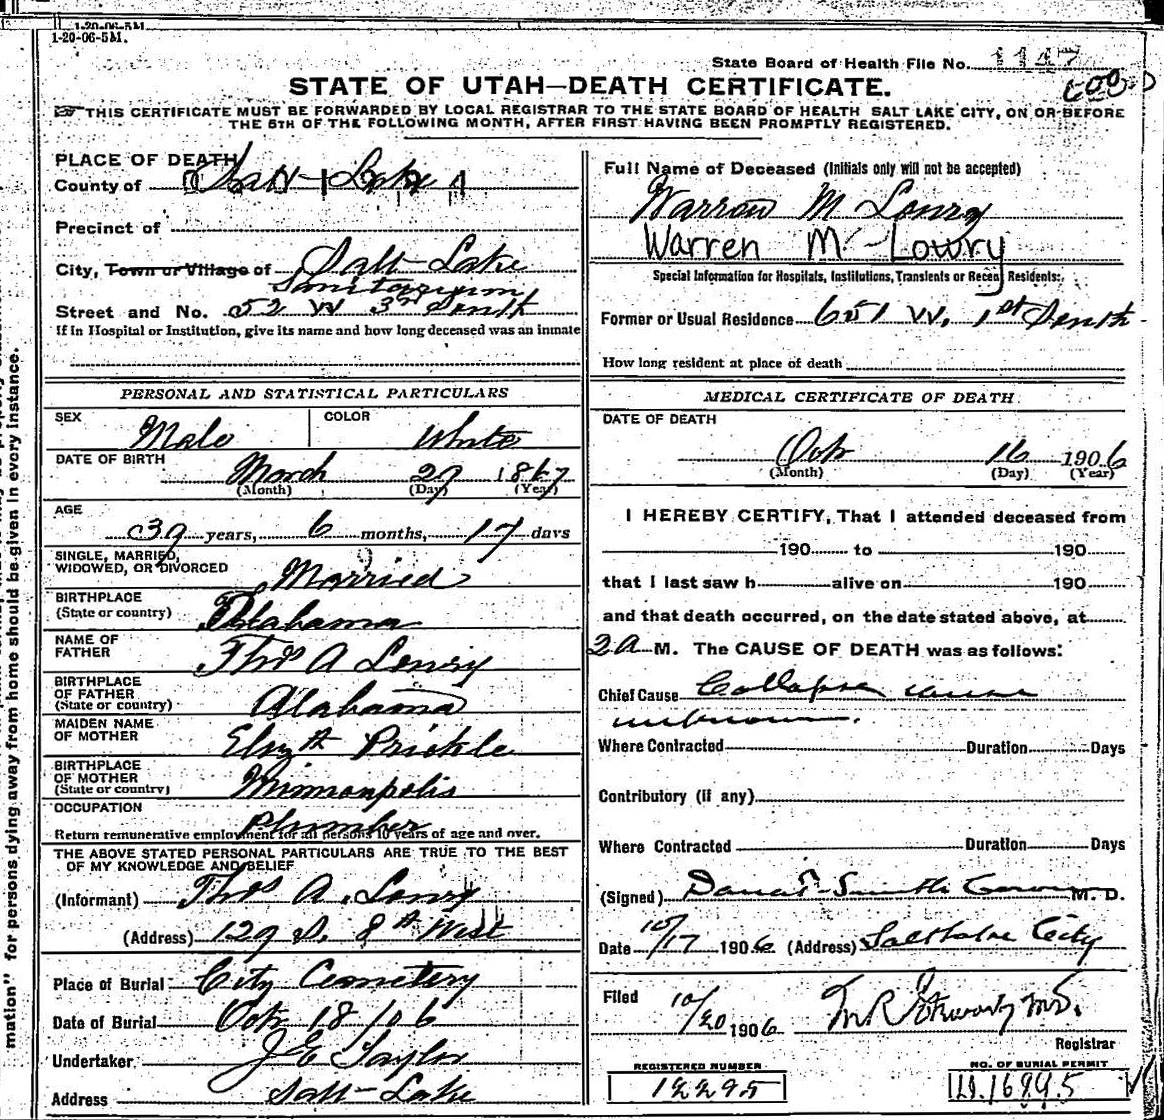 1-20-06-5M.
1-20-06-5M.
State Board of Health File No. 1147
STATE OF UTAH—DEATH CERTIFICATE.
THIS CERTIFICATE MUST BE FORWARDED BY LOCAL REGISTRAR TO THE STATE BOARD OF HEALTH SALT LAKE CITY, ON OR BEFORE
THE 5TH OF THE FOLLOWING MONTH, AFTER FIRST HAVING BEEN PROMPTLY REGISTERED.
PLACE OF DEATH
County of Salt Lake
Precinct of
City, Town or Village of Salt Lake
Sanitarium
Street and No. 52 W 3rd South
If in Hospital or Institution, give its name and how long deceased was an inmate
PERSONAL AND STATISTICAL PARTICULARS
SEX Male COLOR White
DATE OF BIRTH March 29 1867
(Month) (Day) (Year)
AGE 39 years, 6 months, 17 days
SINGLE, MARRIED,
WIDOWED, OR DIVORCED Married
BIRTHPLACE
(State or country) Alabama
NAME OF
FATHER Thos A Lowry
BIRTHPLACE
OF FATHER
(State or country) Alabama
MAIDEN NAME
OF MOTHER Elizth Prickle
BIRTHPLACE
OF MOTHER
(State or country) Minnanpolis
OCCUPATION Plumber
Return remunerative employment for all persons 10 years of age and over.
THE ABOVE STATED PERSONAL PARTICULARS ARE TRUE TO THE BEST
OF MY KNOWLEDGE AND BELIEF
(Informant) Thos A. Lowry
(Address) 129 S. 8th West
Place of Burial City Cemetery
Date of Burial Oct 18/06
Undertaker J E Taylor
Address Salt Lake
Full Name of Deceased (Initials only will not be accepted)
Warren M Lowry
Warren Mc Lowry
Special Information for Hospitals, Institutions, Transients or Recent Residents:
Former or Usual Residence 651 W. 1st South
How long resident at place of death
MEDICAL CERTIFICATE OF DEATH
DATE OF DEATH
Oct 16 1906
(Month) (Day) (Year)
I HEREBY CERTIFY, That I attended deceased from
190 to 190
that I last saw h alive on 190
and that death occurred, on the date stated above, at
2 A M. The CAUSE OF DEATH was as follows:
Chief Cause Collapse cause
unknown.
Where Contracted Duration Days
Contributory (if any)
Where Contracted Duration Days
(Signed) Dana T. Smith Coroner M. D.
Date 10/17 1906 (Address) Salt Lake City
Filed 10/20 1906 M.D.
Registrar
REGISTERED NUMBER
12295
NO. OF BURIAL PERMIT
mation" for persons dying away from home should be given in every instance.